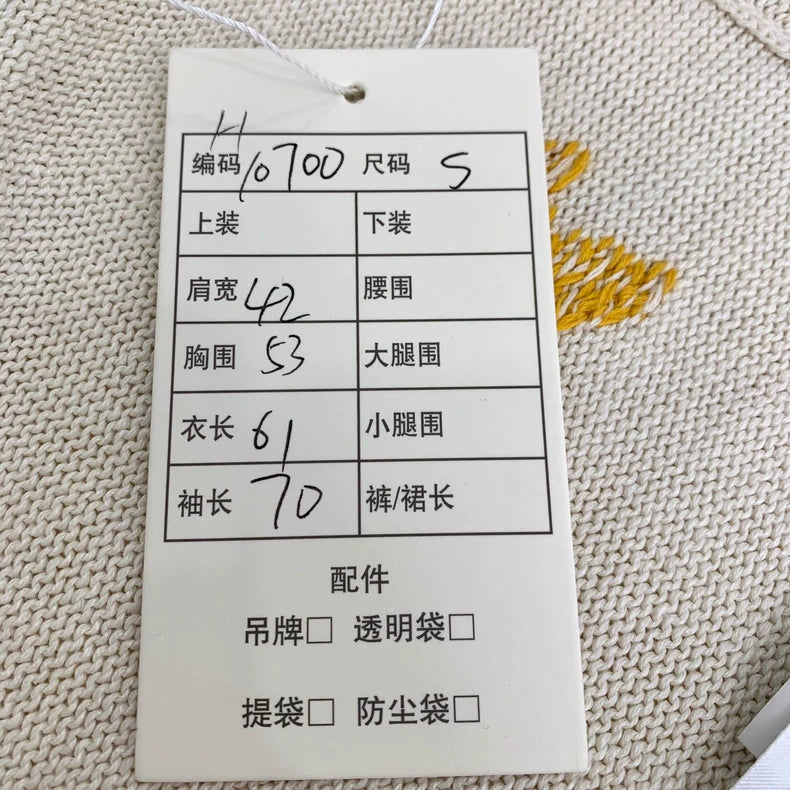 H
编码 10700 尺码 S
上装 下装
肩宽 42 腰围
胸围 53 大腿围
衣长 61 小腿围
袖长 70 裤/裙长
配件
吊牌□ 透明袋□
提袋□ 防尘袋□